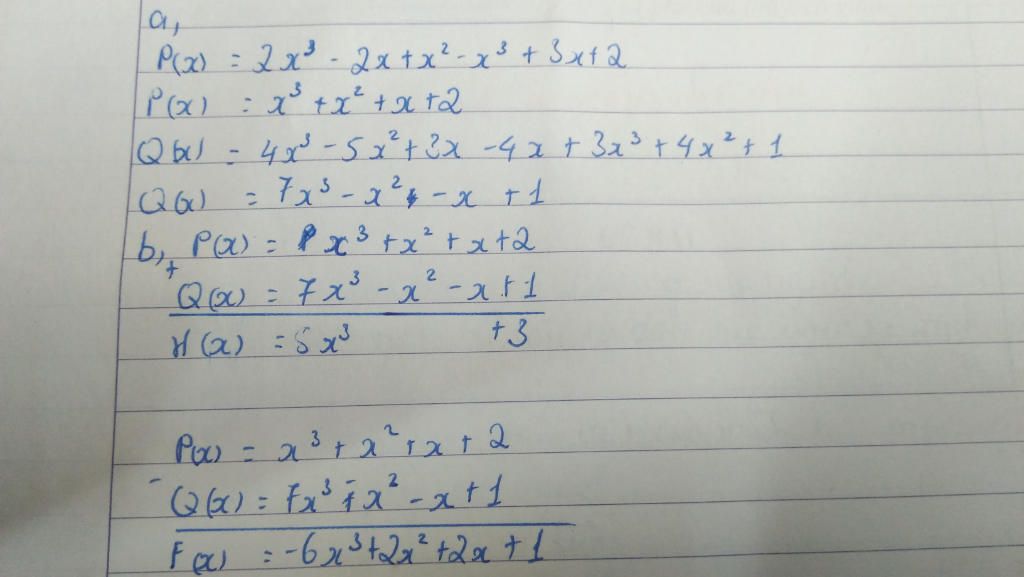 a,
P(x) = 2x³ - 2x + x² - x³ + 3x + 2
P(x) = x³ + x² + x + 2
Q(x) = 4x³ - 5x² + 3x - 4x + 3x³ + 4x² + 1
Q(x) = 7x³ - x² - x + 1
b, P(x) = x³ + x² + x + 2
+
Q(x) = 7x³ - x² - x + 1
H(x) = 5x³ + 3
P(x) = x³ + x² + x + 2
-
Q(x) = 7x³ - x² - x + 1
F(x) = -6x³ + 2x² + 2x + 1